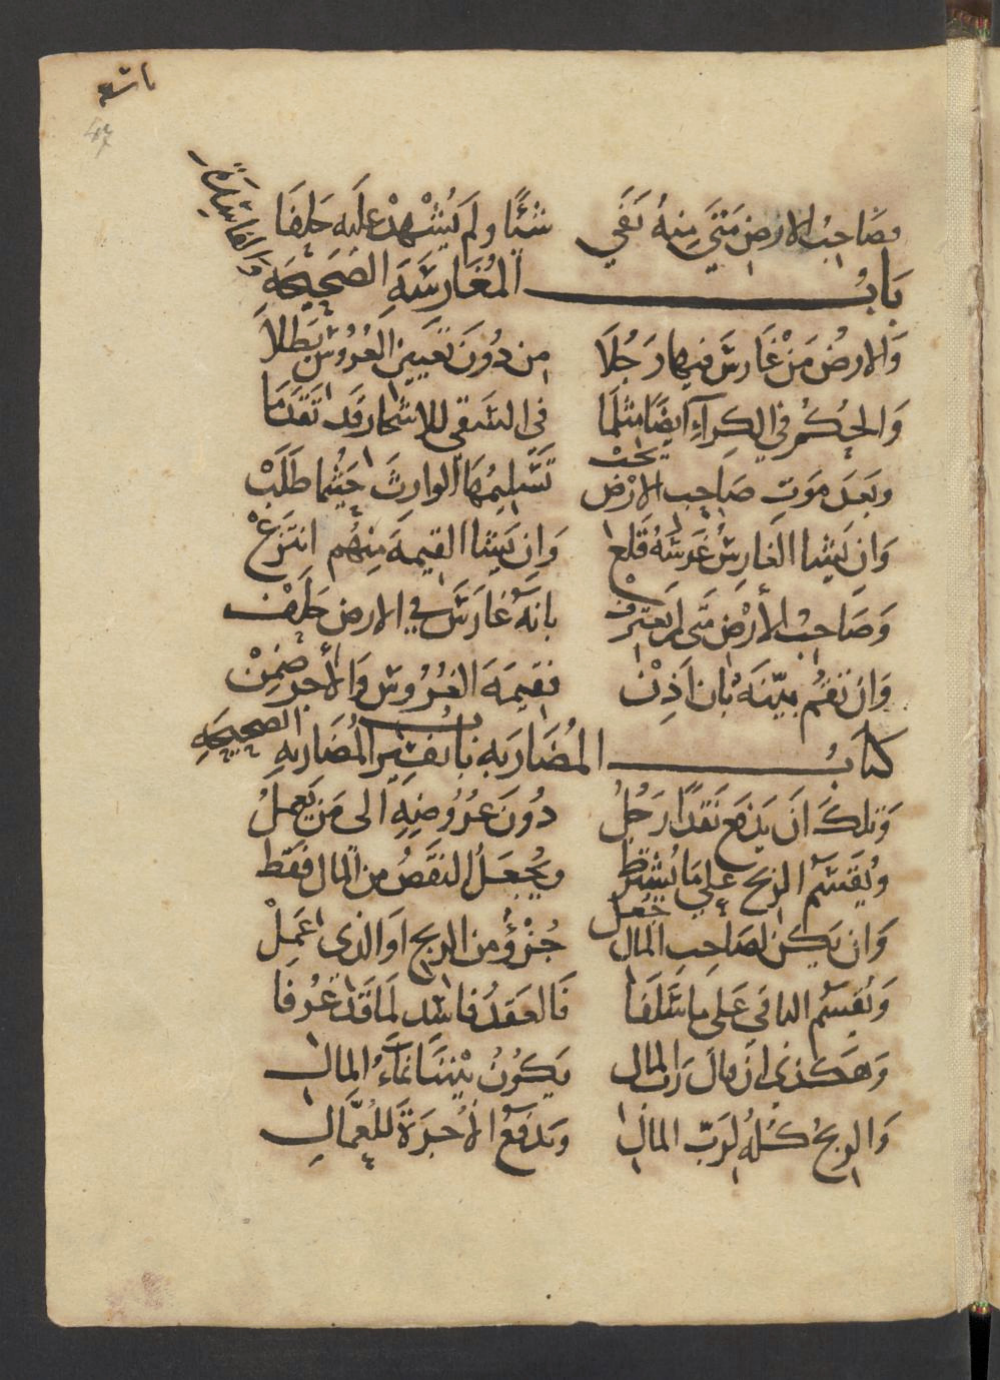 فصاحب الارض متى منه نفي شئًا ولم يشهد عليه حلفا
بَابُ المُغَارسَةِ الصَحيحَه والفاسِدَة
وَالارضُ مَنْ غَارسَ فيها رَجُلَا من دُونَ تَعيين الغُرُوسْ بَطلاَ
وَالحُكمُ في الكِرآءِ ايضًا مثلمَا في السَقي للاشجار قَد تَقَدمَا
وبَعدَ مَوتِ صَاحِب الارْض يجبْ تَسليمُهَا الوارِثَ حَيثُما طَلَبْ
وَانِ يَشا الغارسُ غَرسَهُ قَلعْ وَانِ يَشا القيمةَ مِنهُم انتَزعْ
وَصَاحبُ الأرْض متَى لم يَعترفْ بانهُ غارسَ في الارض حَلفْ
وَان تقُم بيّنَةُ بان اَذِنْ فقيمَةَ الغُرُوس وَالأجر ضَمِنْ
كتابُ المُضَاربه بابُ تفسير المُضَاربهِ الصحيحَه
وَتلكَ اَن يَدْفعَ نَقدًا رَجُلُ دُونَ عُرُوضهِ الى مَن يَعملُ
ويُقَسمُ الربح على مَا يُشترط ويُجعَلُ النَقصُ من المال فَقط
وَان يكن لصَاحِب المال جُعلْ جُزْؤُ من الربح او الذى عَمِلْ
وَيُقسَمُ الباقى عَلى ما سَلَفَا فَالعَقدُ فاسد لمَا قَد عُرفَا
وَهَكذى ان قالَ رَب المال يكونُ بْينَنَا نمآءُ المال
وَالربحُ كُلهُ لرَبّ المال ويدفعُ الأُجرَةَ للعُمَّالِ